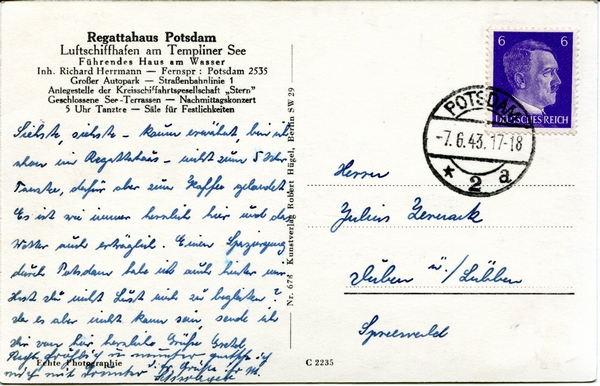 Regattahaus Potsdam
Luftschiffhafen am Templiner See
Führendes Haus am Wasser
Inh. Richard Herrmann — Fernspr: Potsdam 2535
Großer Autopark — Straßenbahnlinie 1
Anlegestelle der Kreisschiffahrtsgesellschaft „Stern"
Geschlossene See-Terrassen — Nachmittagskonzert
5 Uhr Tanztee — Säle für Festlichkeiten
Siehste, siehste - kaum erwähnt, bin ich
schon im Regattahaus - nicht zum 5 Uhr
Tanztee, dafür aber zum Kaffee gelandet
Es ist wie immer herrlich hier und das
Wetter auch erträglich. Einen Spaziergang
durch Potsdam habe ich auch hinter mir
Hast du nicht Lust mich zu begleiten?
da es aber nicht kann sein sende ich
dir von hier herzliche Grüße
Recht
mich mit
Echte Photographie
Nr. 678 Kunstverlag Robert Hügel, Berlin SW 29
C 2235
6 6
DEUTSCHES REICH
POTSDAM
-7.6.43.17-18
* 2 a
Herrn
Julius
Duben ü/Lübben
Spreewald